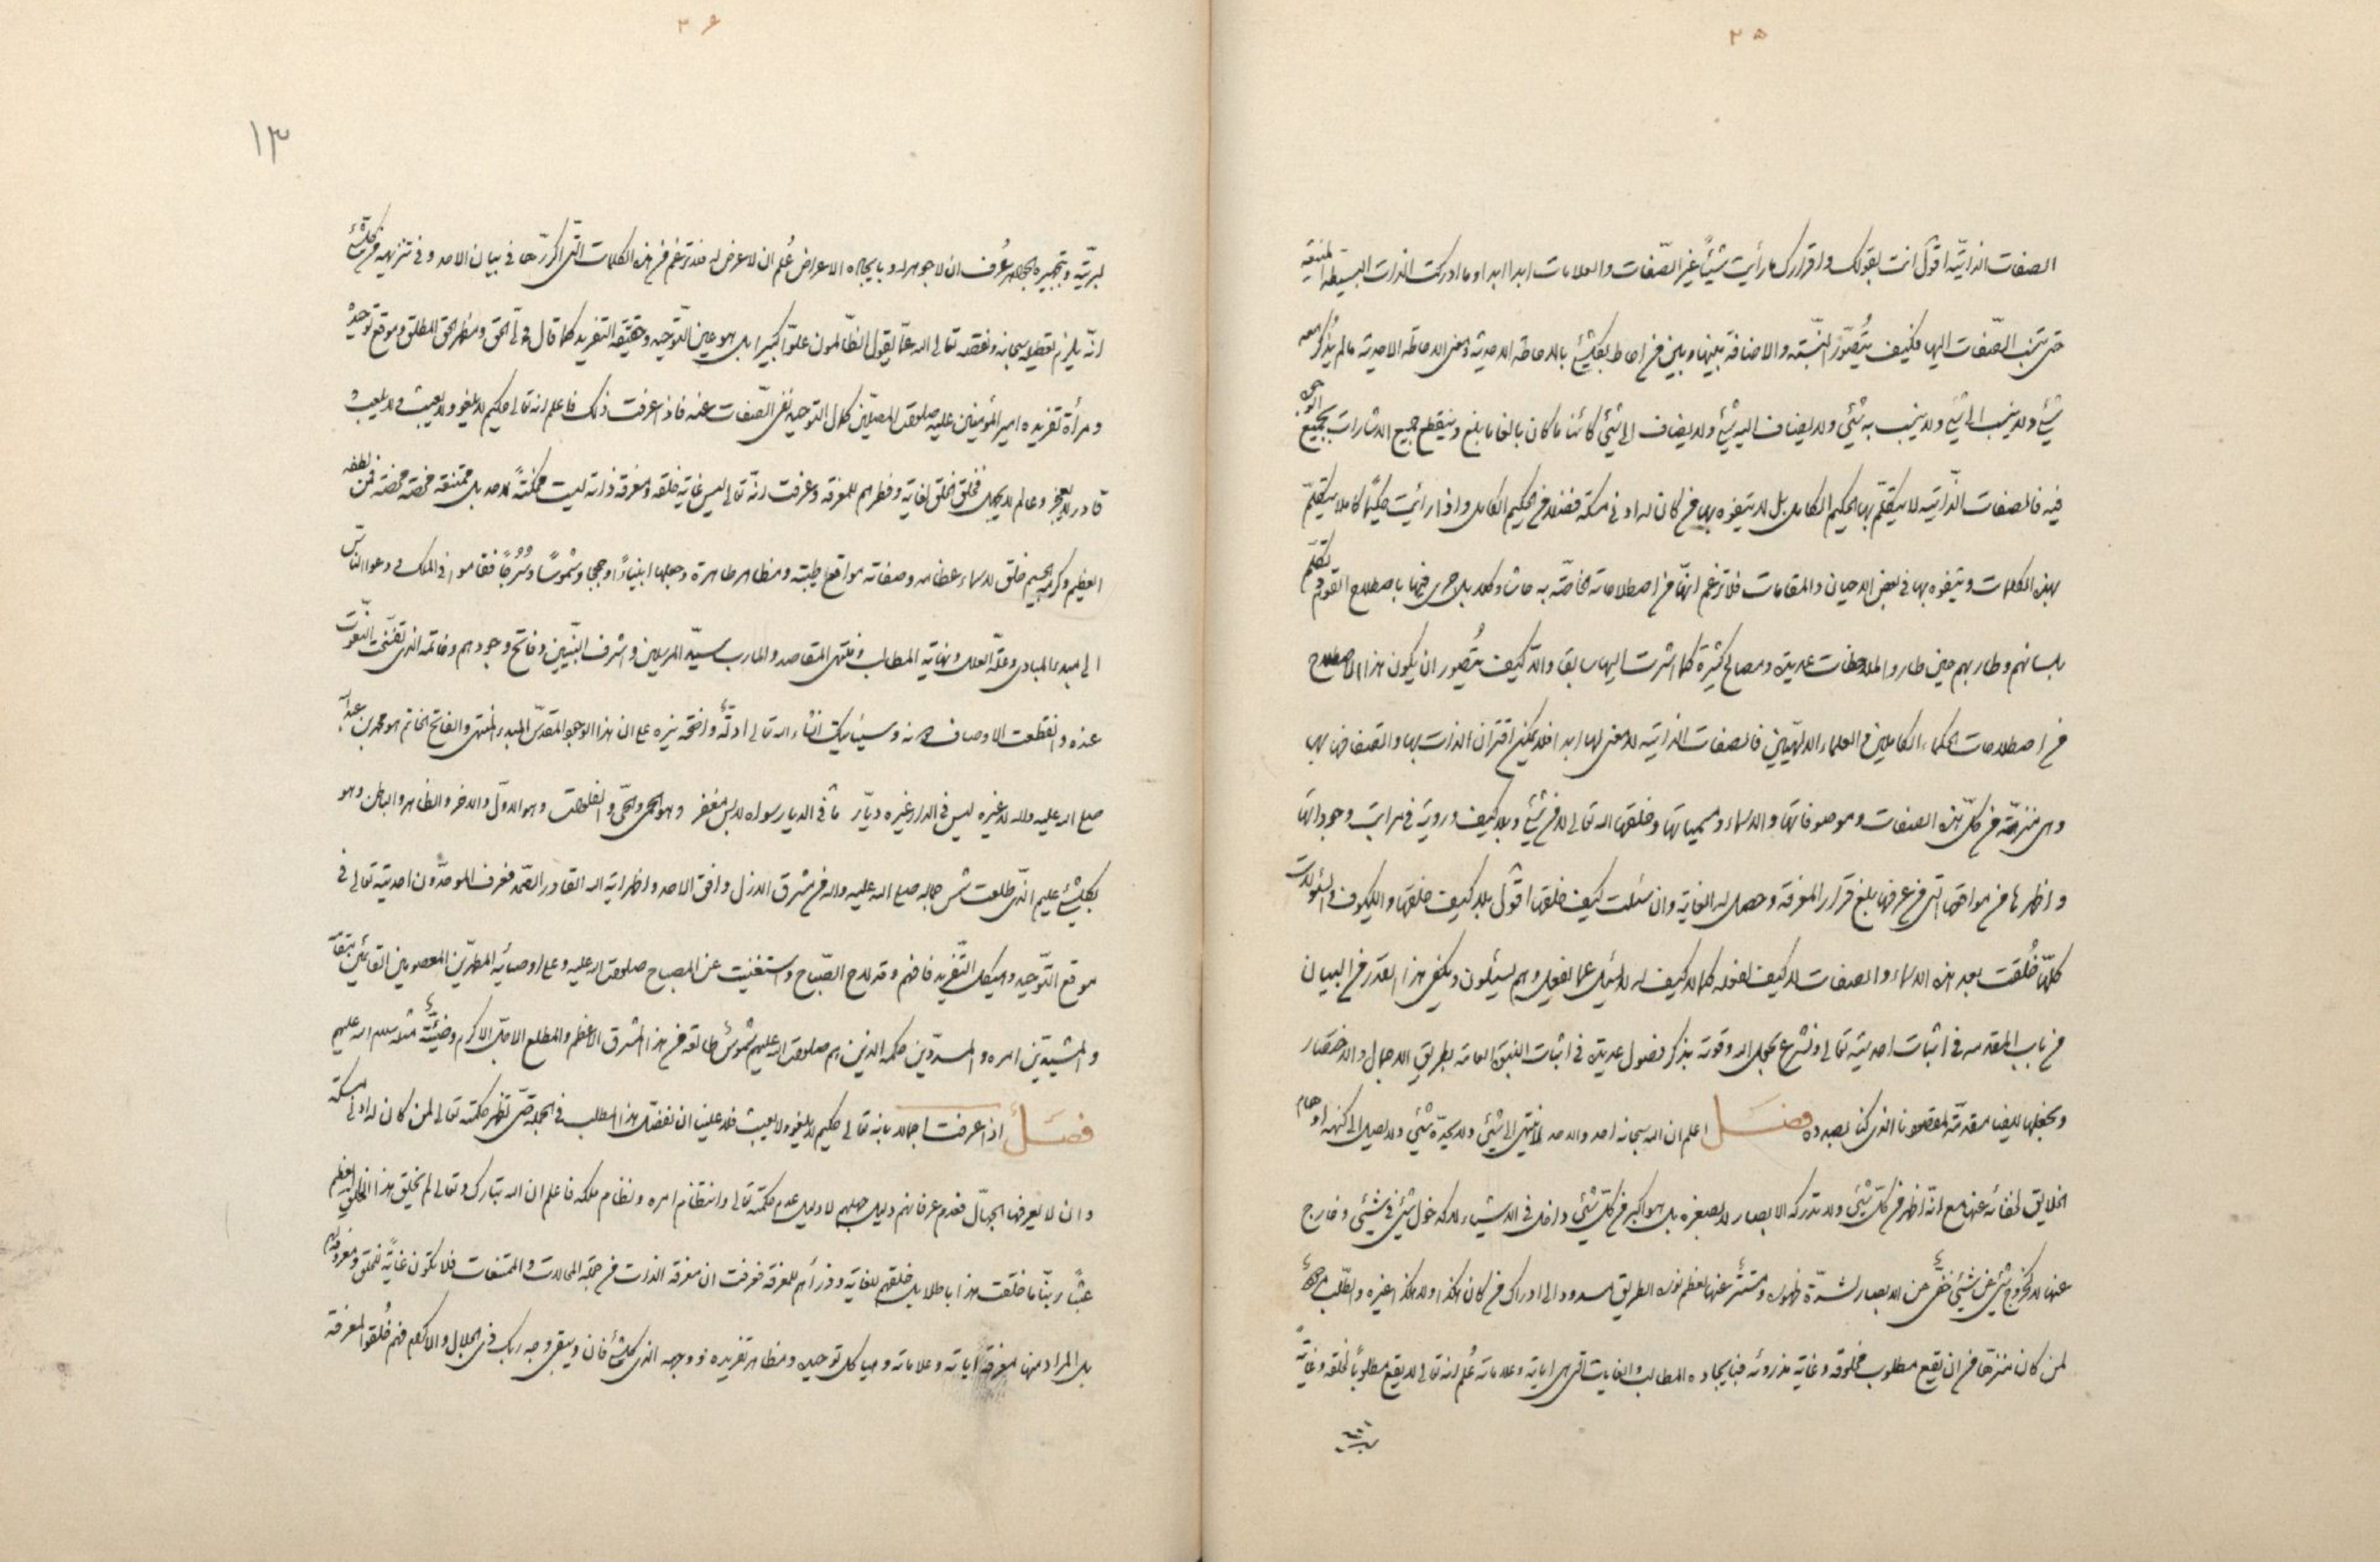 ۲۵
الصفات الذاتیّة اقول انت بقولک و اقرارک ما رأیت شیئاً غیر الصّفات و العلامات ابدا ابدا و ما ادرکت الذات البسیطة
حتی تنسب الصّفات الیها فکیف یُتصوّر النسبة و الاضافة بینها و بین من احاط بکلشیٔ بالاحاطة الاحدیة و معنی الاحاطة الاحدیة ما لم یذکر معه
شیٔ و لا ینسب الی شیٔ و لا ینسب به شیٔ و لا یضاف الیه شیٔ و لا یضاف الی شیٔ کائنا ما کان بالغا ما بلغ و ینقطع جمیع الاشارات بجمیع
فیه فالصفات الذّاتیة لا یتکلّم بها الحکیم الکامل بل لا یتفوه بها من کان له ادنی مسکة فضلا من الحکیم الکامل و اذا رأیت حکیمًا کاملا یتکلّم
بهذه الکلمات و یتفوه بها فی بعض الاحیان و المقامات فلا تزعم انها من اصطلاحاته الخاصّة به حاشا و کلا بل جری فیها باصطلاح القوم تکلّم
بلسانهم و طار بهم حین طاروا لملاحظات عدیدة و مصالح کثیرة کما اشرت الیها سابقا و الّا کیف یُتصور ان یکون هذا الاصطلاح
من اصطلاحات الحکماء الکاملین من العلماء الالهیّین فالصفات الذاتیة لا معنی لها ابدا فلا یمکن اقتران الذات بها و اتصافها بها
و هی منزهة من کلّ هذه الصفات و موصوفاتها و الاسماء و مسمیاتها و خلقها الله تعالی لا من شیٔ و بلا کیف و رویة فی مراتب وجوداتها
و اظهرها من مواقعها التی من عرفها بلغ قرار المعرفة و حصل له الغایة و ان سئلت کیف خلقها اقول بلا کیف خلقها و الکیوف و السئوالات
کلّها خُلقت بعد هذه الاسماء و الصفات لا کیف لفعله کما لا کیف له لا یسئل عما یفعل و هم یسئلون و یکفی هذا القدر من البیان
من باب المقدمه فی اثبات احدیّته تعالی و نشرع بحول الله و قوته بذکر فصول عدیدة فی اثبات النبوة العامة بطریق الاجمال و الاختصار
و نجعلها ایضا مقدمّة لمقصودنا الذی کنا بصدده فصـــل اعلم ان الله سبحانه احد و الاحد لا ینتهی الی شیٔ و لا یحدّه شیٔ و لا یصل الی کنهه اوهام
الخلایق لخفائه عنهم مع انّه اظهر من کلّ شیٔ و لا تدرکه الابصار لا لصغره بل هو اکبر من کلّ شیٔ داخل فی الاشیاء لا کدخول شیٔ فی شیٔ و خارج
عنها لا کخروج شیٔ عن شیٔ خفیٌّ عن الابصار لشدّة ظهوره و مستتر عنها لعظم نوره الطریق مسدود الی ادراک من کان هکذا و لا هکذا غیره و الطلب
لمن کان منزها من ان یقع مطلوب مخلوقه و غایة مذروئه فبایجاده المطالب و الغایات التی هی ایاته و علاماته عُلم انه تعالی لا یقع مطلوباً لخلقه و غایة
۲۶
۱۳
لبریّته و بتجهیره الجواهر عُرف ان لا جوهر له و بایجاده الاعراض عُلم ان لا عرض له فلا تزعم من هذه الکلمات التی اکررّها فی بیان الاحد و فی تنزیهه من کلشیٔ
انّه یلزم تعطیله سبحانه و نقصه تعالی الله عمّا یقول الظّالمون علوّاً کبیرا بل هو عین التّوحید و حقیقة التفرید کما قال ولیّ الحق و مظهر الحق المطلق و موقع توحیده
و مرآة تفریده امیر المؤمنین علیه صلوات المصلّین کمال التوحید نفی الصّفات عنه فاذا عرفت ذلک فاعلم انه تعالی حکیم لا یلغو و لا یعبث و لا یلعب و
قادر لا یعجز و عالم لا یجهل فخلق الخلق لغایة و فطرهم للمعرفة و عرفت انّه تعالی لیس غایة خلقه و معرفة ذاته لیست ممکنةً لاحد بل ممتنعة محضة فمن لطفه
العظیم و کرمه الجسیم خلق لاسماء عظامه و صفاته مواقع طیبة و مظاهر طاهرة و جعلها انبیاءً و حججا و شموسًا و سُرُجاً فقاموا فی الملک و دعوا الناس
الی مبدء المبادی و علّة العلل و نهایة المطالب و منتهی المقاصد و المارب سیّد المرسلین و اشرف النبّیین و فاتح وجودهم و خاتمه الذی نفنت النعوت
عنده و انقطعت الاوصاف دونه و سیأتیک انشاء الله تعالی ادلّة واضحة نیرة علی ان هذا الوجود المقدّس المبدء المنتهی و الفاتح الخاتم هو محمد بن عبدالله
صلی الله علیه و اله لا غیره لیس فی الدار غیره دیّار ما فی الدیار سواه لابس مغفر و هو الحمی و الحیّ و الفلوات و هو الاوّل و الاخر و الظاهر و الباطن و هو
بکلشیٔ علیم الذی طلعت شمس جماله صلی الله علیه و اله من مشرق الازل و افق الاحد و اظهر ایة الله القادر الصّمد فعرف الموحدّون احدیته تعالی فی
موقع التّوحید و هیکل التّفرید فافهم و قد لاح الصّباح و استغنیت عن المصباح صلوات الله علیه و علی اوصیائه المطهرّین المعصومین القائمین مقامه
و المشیدّین امره و المسدّدین حکمه الذین هم صلوات الله علیهم شموس طالعة من هذا المشرق الاعظم و المطلع الاجل الاکرم و مضیئة مثله سلام الله علیهم
فصــل اذا عرفت اجمالا بانه تعالی حکیم لا یلغو و لا یعبث فلا علینا ان نفصّل هذا المطلب فی الجملة حتی تظهر حکمته تعالی لمن کان له ادنی مسکة
و ان لا یعرفها الجهّال فعدم عرفانهم دلیل جهلهم لا دلیل عدم حکمته تعالی و انتظام امره و نظام ملکه فاعلم ان الله تبارک و تعالی لم یخلق هذا الخلق العظیم
عبثًا ربّنا ما خلقت هذا باطلا بل خلقهم لغایة و ذرأهم للمعرفة فعرفت ان معرفة الذات من جملة المحالات و الممتنعات فلا تکون غایةً للخلق و معروفة لهم
بل المراد منها معرفة ایاته و علاماته و هیاکل توحیده و مظاهر تفریده و وجهه الذی کلشیٔ فان و یبقی وجه ربک ذی الجلال و الاکرام فهم خُلقوا لمعرفة